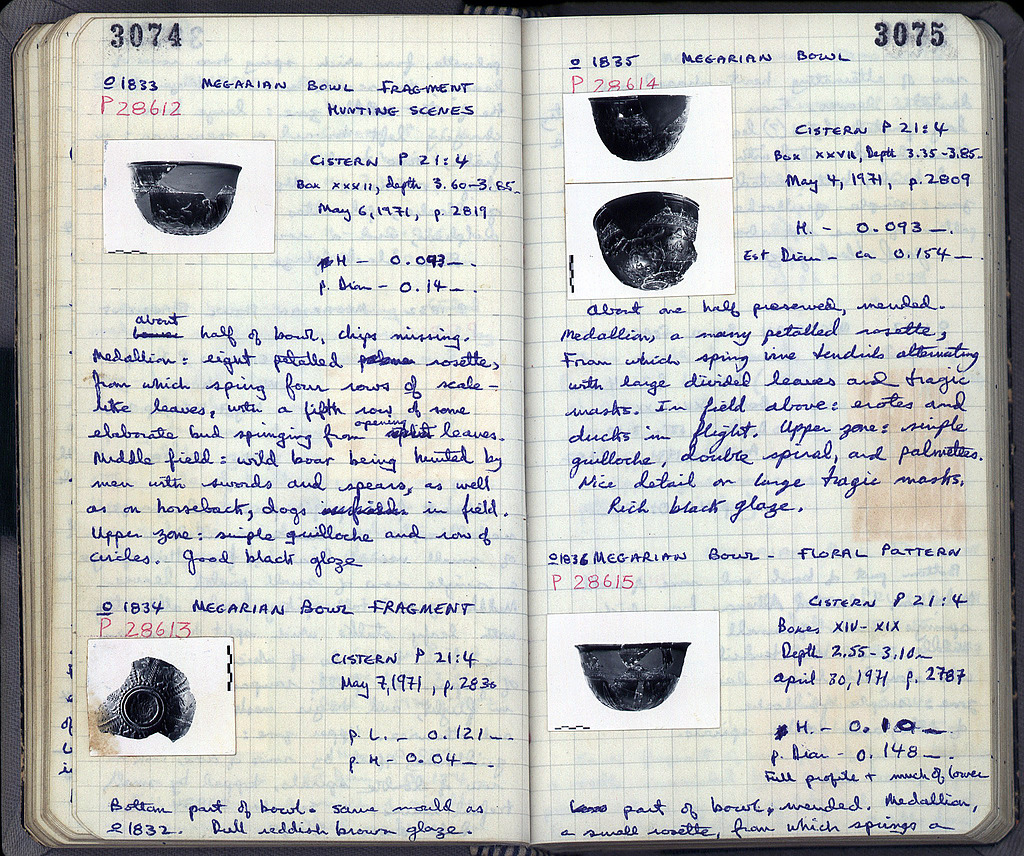 3074
O 1833 MEGARIAN BOWL FRAGMENT
P 28612 HUNTING SCENES
CISTERN P 21:4
Box XXXII, Depth 3.60–3.85
May 6, 1971, p. 2819
H – 0.093
p. Diam – 0.14
about
half of bowl, chips missing.
Medallion: eight petalled rosette,
from which spring four rows of scale-
like leaves, with a fifth row of some
elaborate bud springing from opening leaves.
Middle field: wild boar being hunted by
men with swords and spears, as well
as on horseback, dogs in field.
Upper zone: simple guilloche and row of
circles. Good black glaze
O 1834 MEGARIAN BOWL FRAGMENT
P 28613
CISTERN P 21:4
May 7, 1971, p. 2830
p. L. – 0.121
p. H – 0.04
Bottom part of bowl. Same mould as
O 1832. Dull reddish brown glaze.
3075
O 1835 MEGARIAN BOWL
P 28614
CISTERN P 21:4
Box XXVII, Depth 3.35–3.85
May 4, 1971, p. 2809
H. – 0.093
Est Diam – ca 0.154
About one half preserved, mended.
Medallion, a many petalled rosette,
From which spring vine tendrils alternating
with large divided leaves and tragic
masks. In field above: erotes and
ducks in flight. Upper zone: simple
guilloche, double spiral, and palmettes.
Nice detail on large tragic masks.
Rich black glaze.
O 1836 MEGARIAN BOWL – FLORAL PATTERN
P 28615
CISTERN P 21:4
Boxes XIV–XIX
Depth 2.55–3.10
April 30, 1971 p. 2787
H. – 0.10
p. Diam – 0.148
Full profile + much of lower
part of bowl, mended. Medallion,
a small rosette, from which springs a